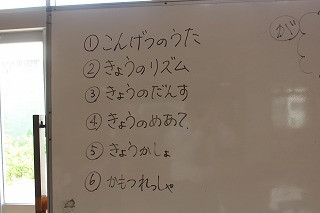 ①こんげつのうた
②きょうのリズム
③きょうのだんす
④きょうのめあて
⑤きょうかしょ
⑥かもつれっしゃ
が